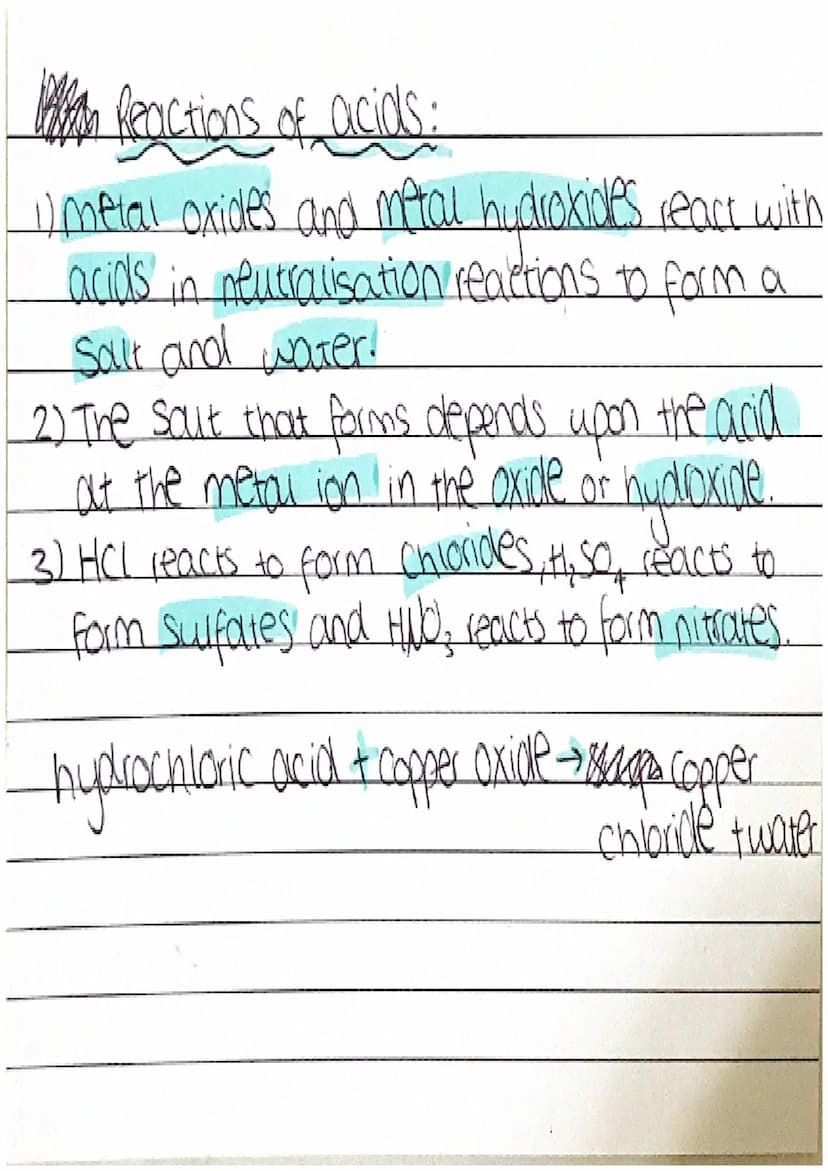 Reactions of acids:
1) metal oxides and metal hydroxides react with
acids in neutralisation reactions to form a
Salt and water.
2) The salt that forms depends upon the acid
at the metal ion in the oxide or hydroxide.
3) HCl reacts to form chlorides, H₂SO₄ reacts to
form sulfates and HNO₃ reacts to form nitrates.
hydrochloric acid + copper oxide → copper
chloride + water